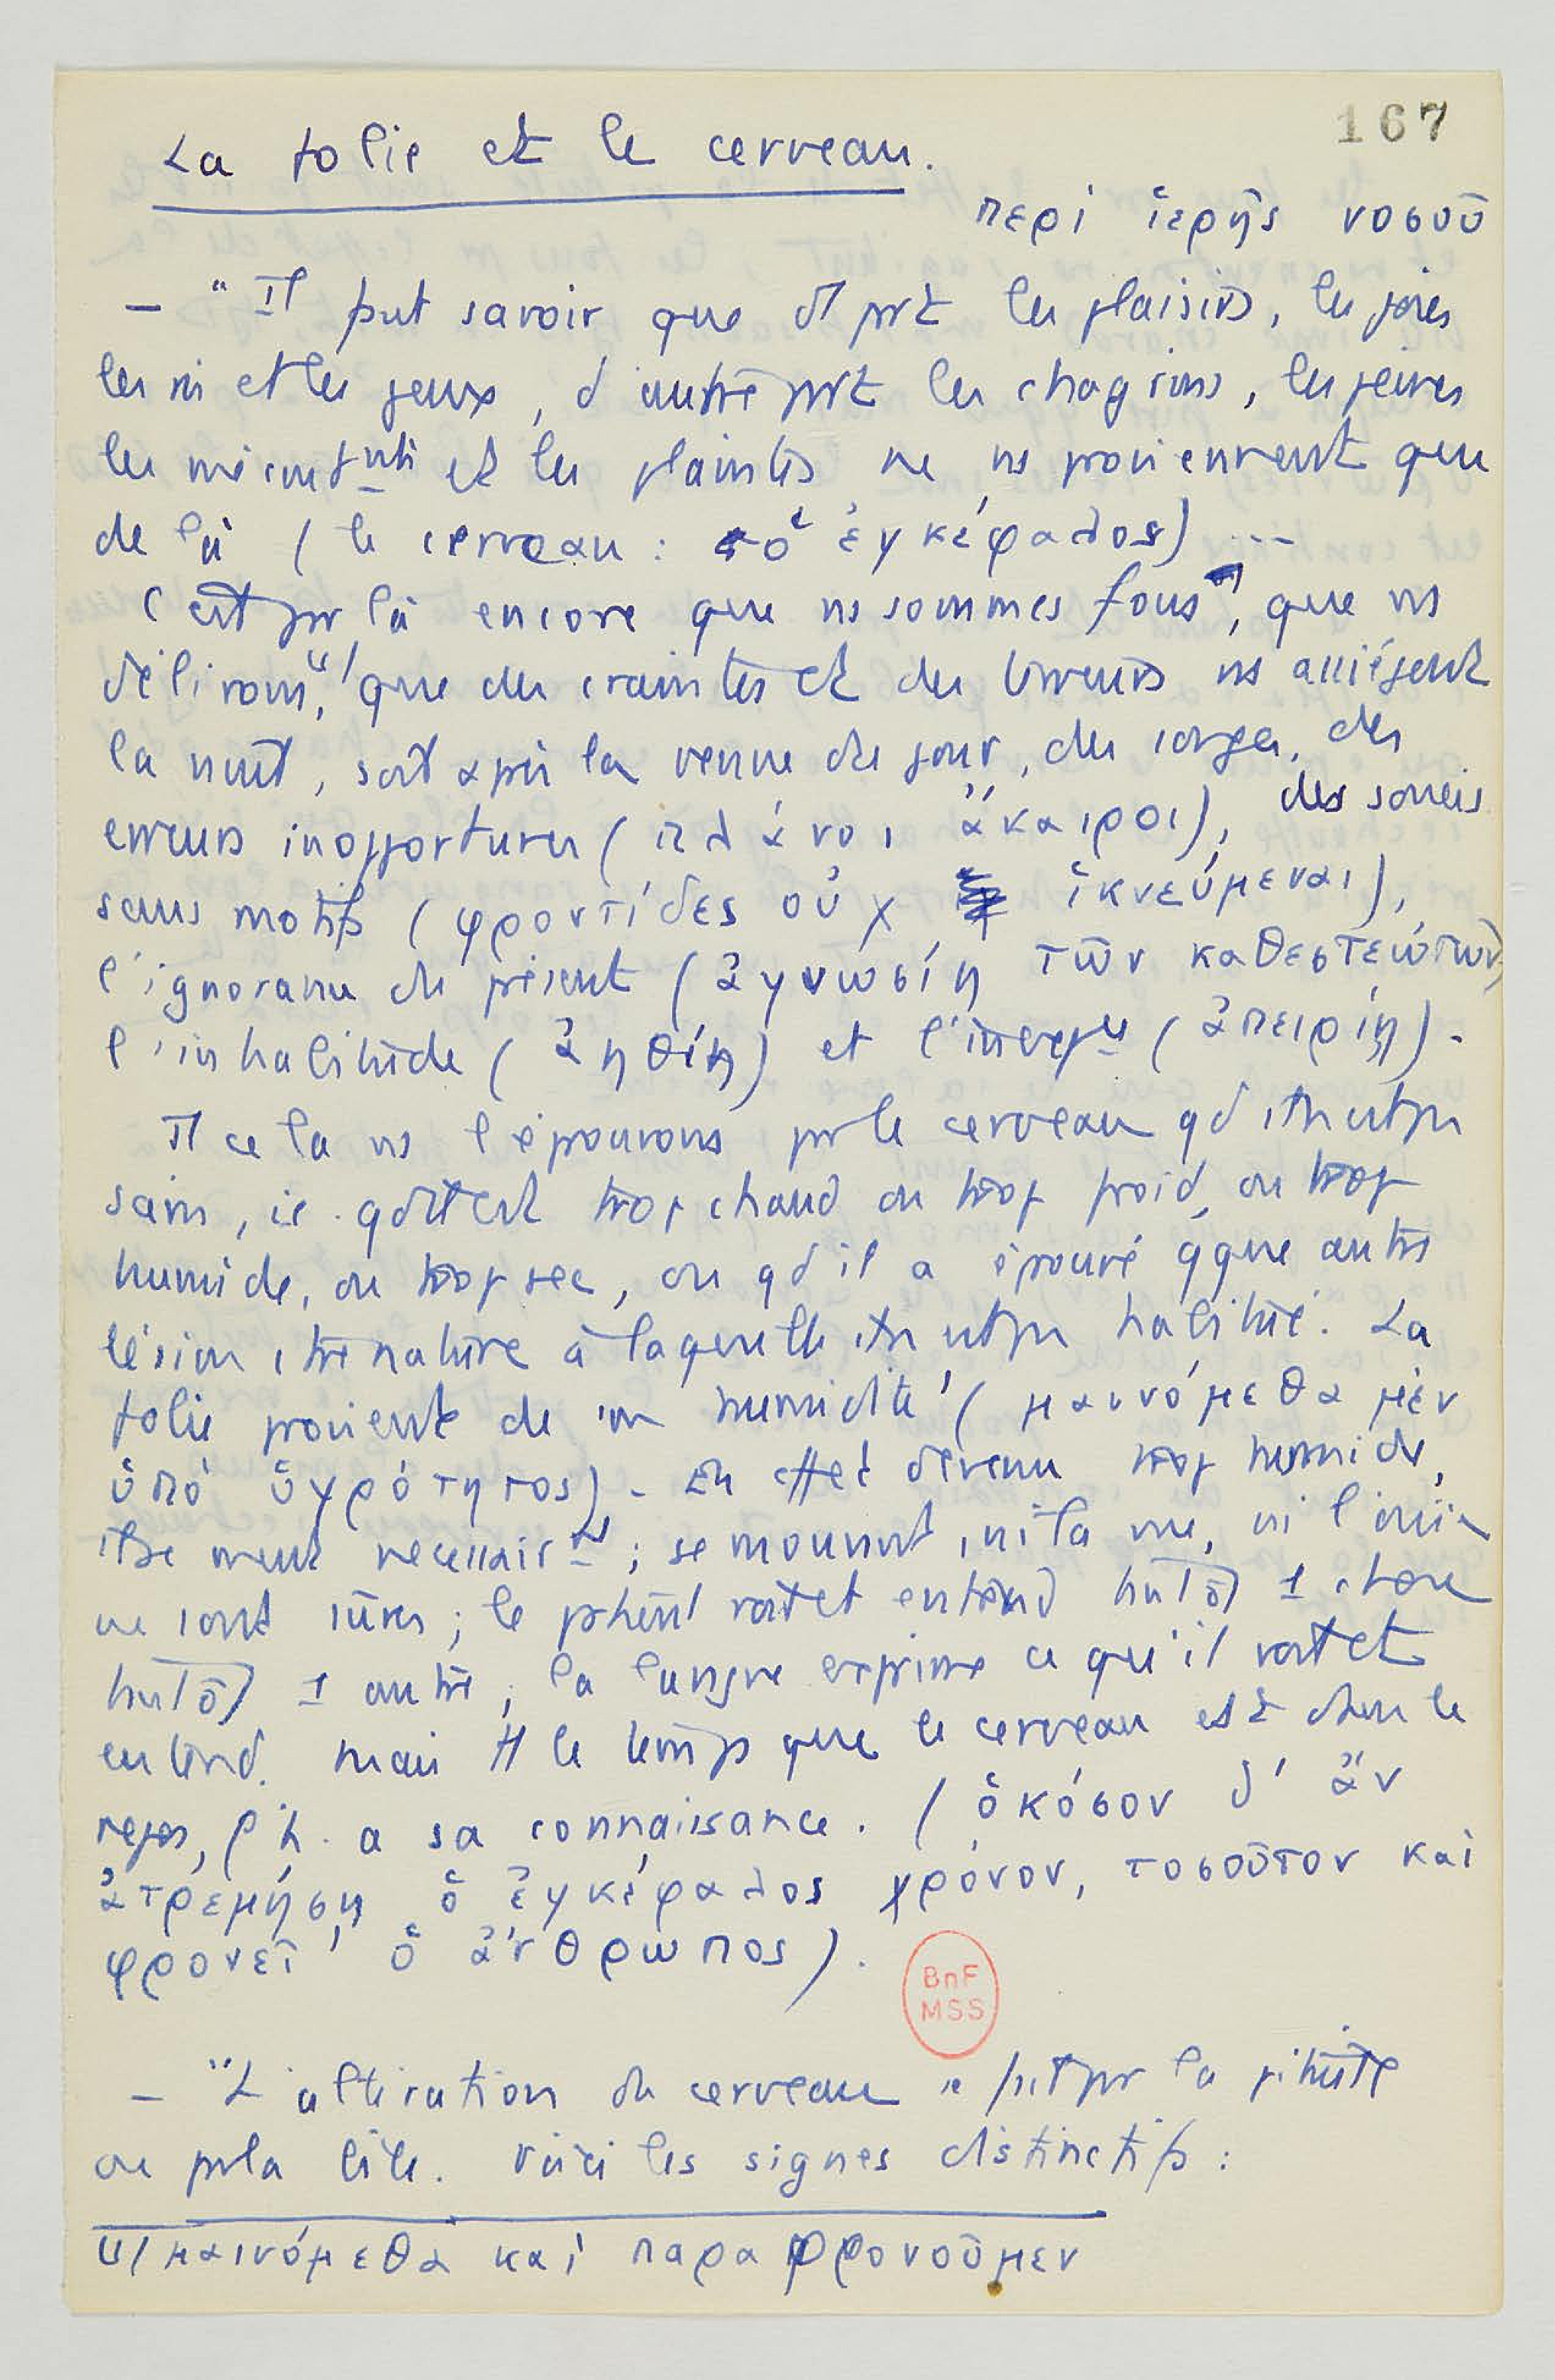 167
La folie et le cerveau.
περί ἱερῆς νοσοῦ
— "Il faut savoir que d'1 part les plaisirs, les joies
les ris et les jeux, d'autre part les chagrins, les peines
les mécontnts et les plaintes ne ns proviennent que
de là (le cerveau : ὁ ἐγκέφαλος) ...
C'est par là encore que ns sommes fous, que ns
délirons,(1) que des craintes et des terreurs ns assiègent
la nuit, soit après la venue du jour, des songes, des
erreurs inopportunes (πλάνοι ἄκαιροι), des soucis
sans motifs (φροντίδες οὐχ ἱκνεύμεναι),
l'ignorance du présent (ἀγνωσίη τῶν καθεστεώτων)
l'inhabitude (ἀηθίη) et l'inexp (ἀπειρίη).
Tt cela ns l'éprouvons par le cerveau qd il n'est pas
sain, ie. qd il est trop chaud ou trop froid, ou trop
humide, ou trop sec, ou qd il a éprouvé qque autre
lésion contre nature à laquelle il n'est pas habitué. La
folie provient de son humidité (μαινόμεθα μὲν
ὑπό ὑγρότητος). En effet devenu trop humide,
il se meut nécessairnt ; se mouvant, ni la vue, ni l'ouïe
ne sont sûres ; le patient voit et entend tantôt 1 chose
tantôt 1 autre ; la langue exprime ce qu'il voit et
entend. Mais tt le temps que le cerveau est dans le
repos, l'h. a sa connaissance. (ὁκόσον δ' ἄν
ἀτρεμήσῃ ὁ ἐγκέφαλος χρόνον, τοσοῦτον καί
φρονεῖ ὁ ἄνθρωπος).
BnF
MSS
— "L'altération du cerveau se fait par la pituite
ou par la bile. Voici les signes distinctifs :
(1) μαινόμεθα καί παραφρονοῦμεν